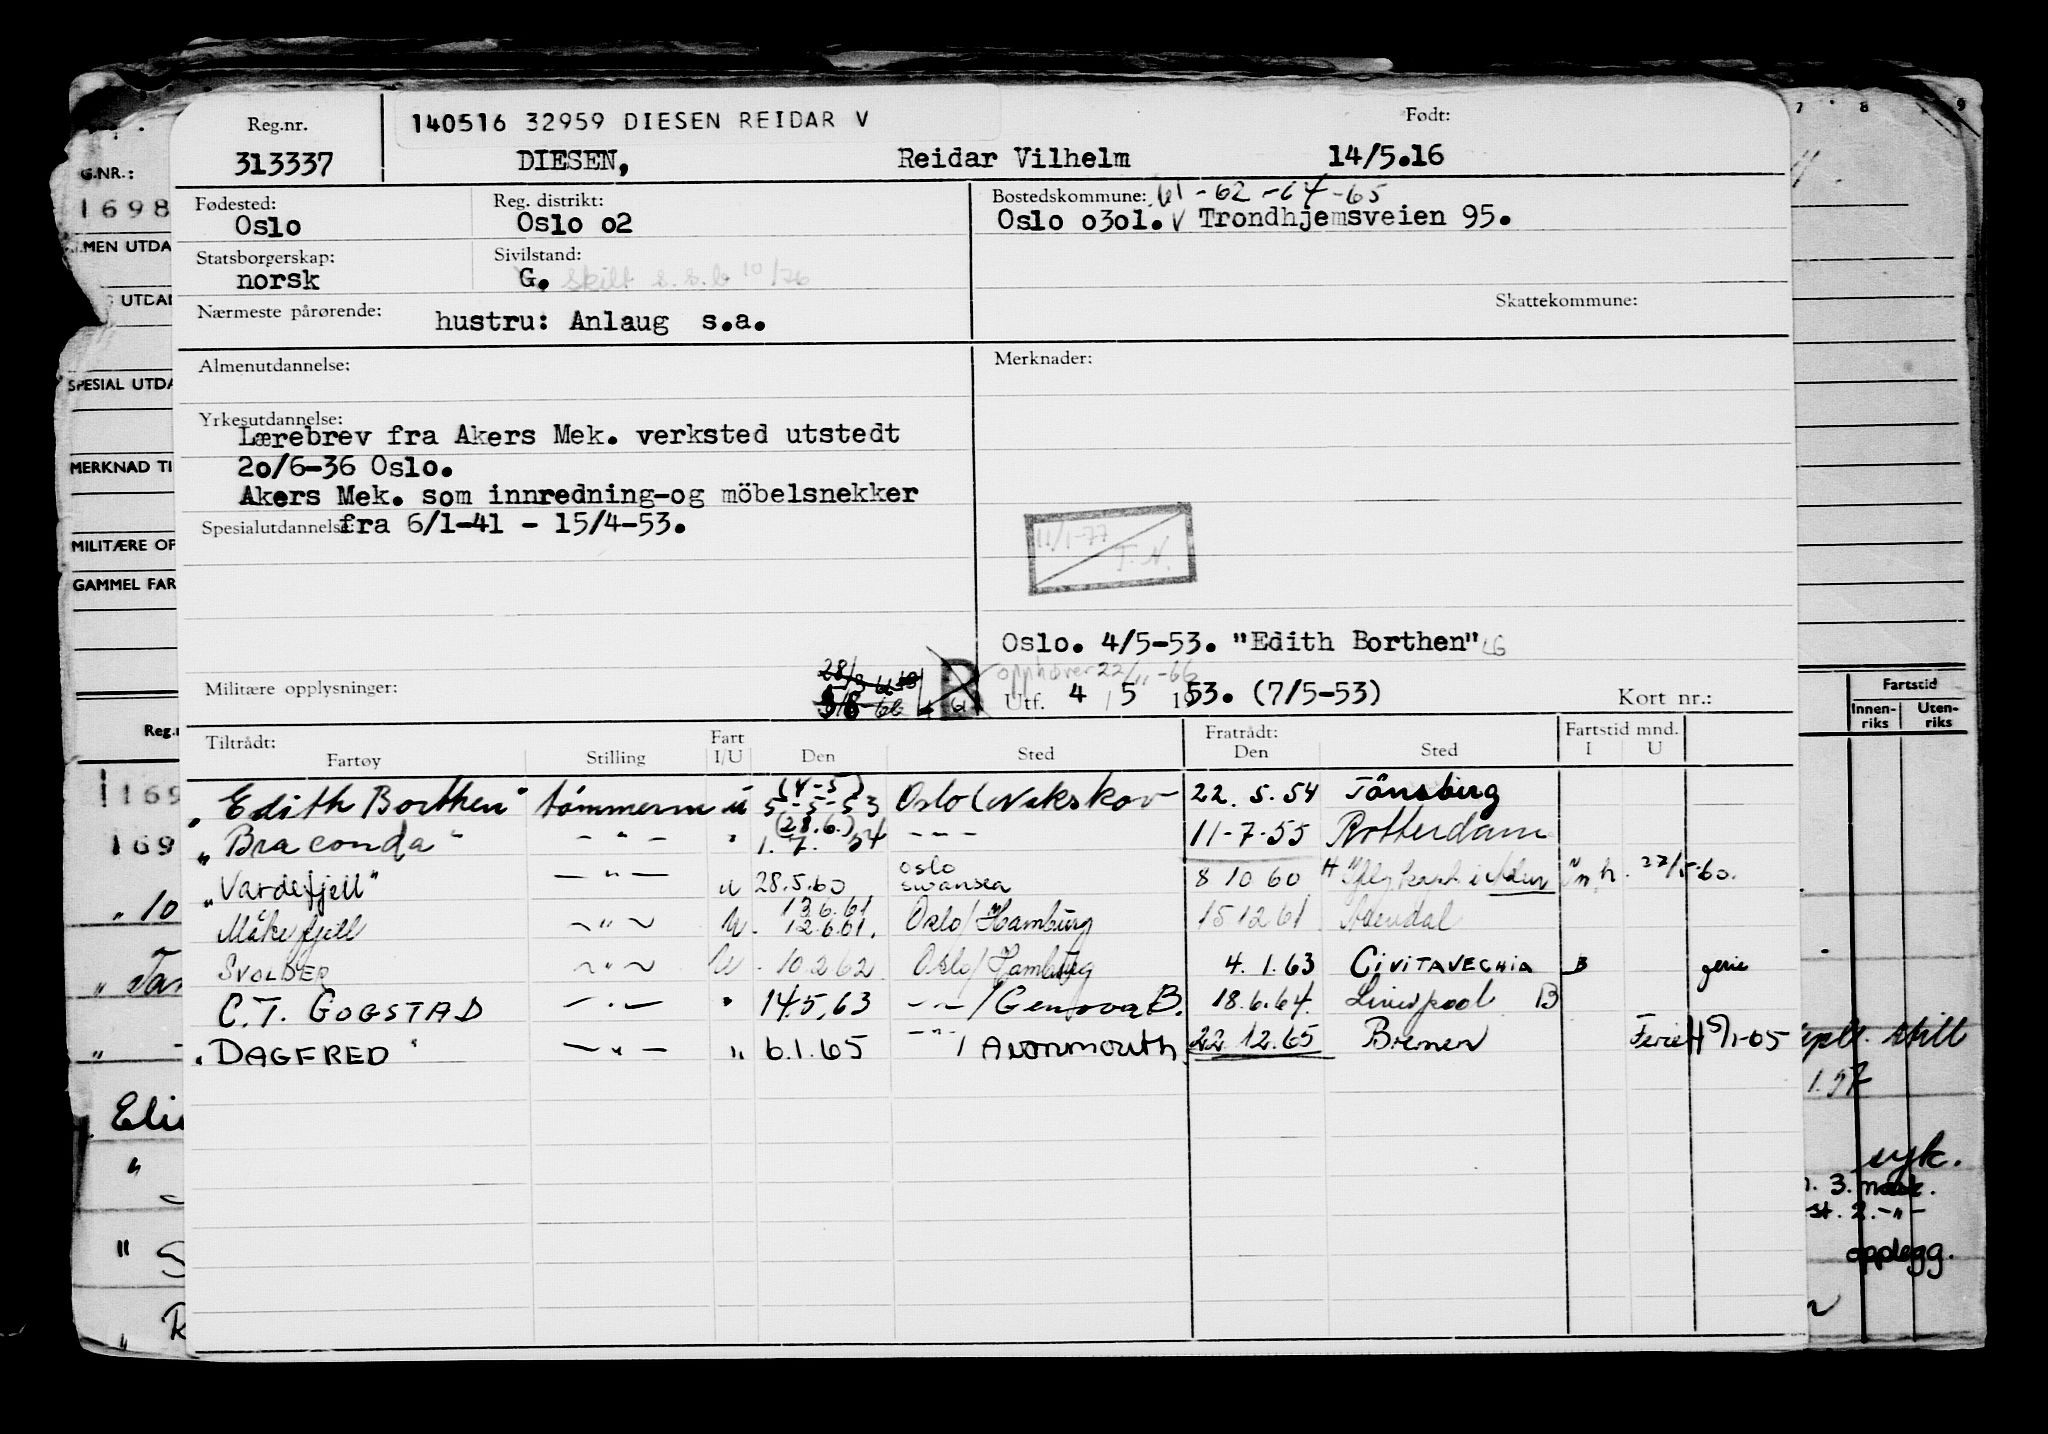 Reg.nr. 140516 32959 DIESEN REIDAR V Født:
313337 DIESEN, Reidar Vilhelm 14/5.16
Fødested: Reg. distrikt: Bostedskommune: 61-62-64-65
Oslo Oslo o2 Oslo o3o1. V Trondhjemsveien 95.
Statsborgerskap: Sivilstand:
norsk G. skilt s.s.b 10/76
Nærmeste pårørende: hustru: Anlaug s.a. Skattekommune:
Almenutdannelse: Merknader:
Yrkesutdannelse:
Lærebrev fra Akers Mek. verksted utstedt
2o/6-36 Oslo.
Akers Mek. som innredning-og möbelsnekker
Spesialutdannelse: fra 6/1-41 - 15/4-53.
11/1-77
T.N.
Oslo. 4/5-53. "Edith Borthen"
opphøver 22/11-66
Militære opplysninger: Utf. 4 / 5 1953. (7/5-53) Kort nr.:
Tiltrådt: Fart Fratrådt: Fartstid mnd.
Fartøy Stilling I/U Den Sted Den Sted I U
"Edith Borthen" tömmerm u (4-5) 5-5-53 Oslo/Nakskov 22.5.54 Tönsberg
"Braconda" -"- " (28.6.) 1.7.54 -"- 11-7-55 Rotterdam
"Vardefjell" -"- u 28.5.60 Oslo Swansea 8 10 60 22/5-60.
Måkefjell -"- U. 13.6.61 12.6.61. Oslo/Hamburg 15 12 61 Arendal
SVOLDER -"- U. 10.2.62 Oslo/Hamburg 4.1.63 CIVITAVECHIA B ferie
C.T. GOGSTAD -"- " 14.5.63 -"-/Genova B. 18.6.64. Liverpool B
"DAGFRED" -"- " 6.1.65 -"- / AVONMOUTH 22.12.65 Bremen Ferie H 5/1-65
G.NR.:
1698
ALMEN UTDA
UTDAN
SPESIAL UTDA
MERKNAD TI
MILITÆRE OP
GAMMEL FAR
Reg.n
169
169
"10
"
Eli
"
"
"
7 8 9
Fartstid
Innen-riks Uten-riks
skill
1.57
syk.
3. mask.
st. 2. -"-
opplegg.